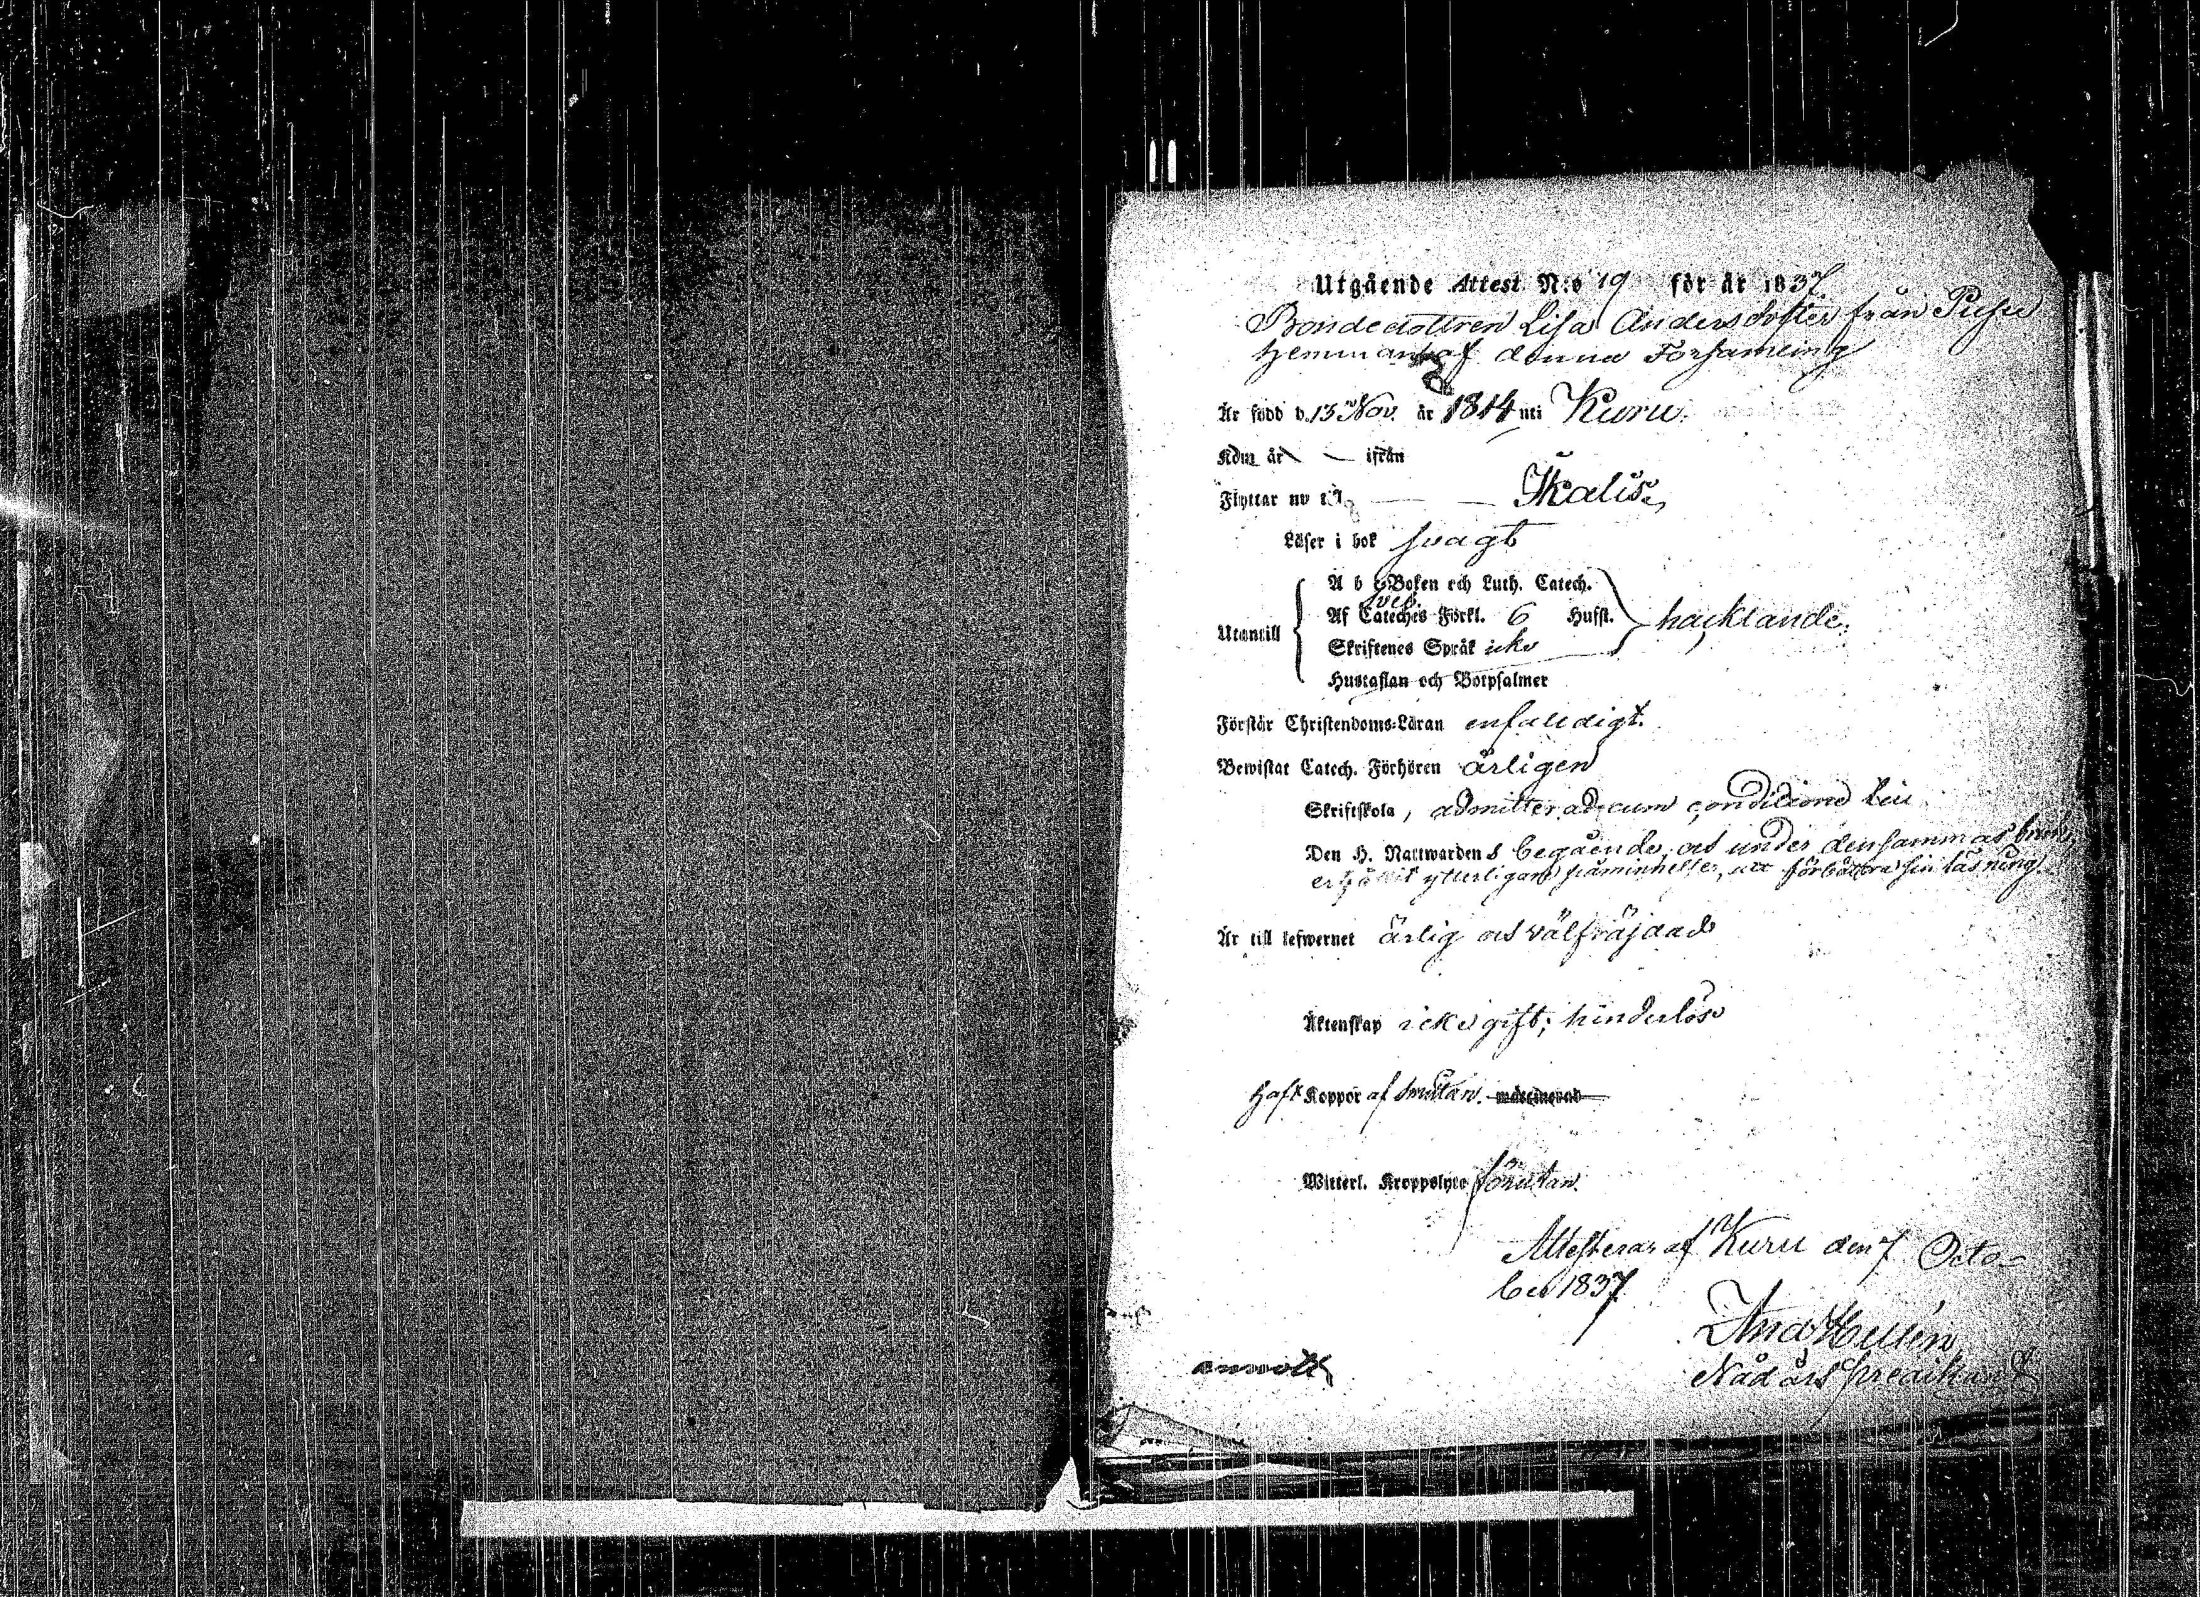 Utgående Attest N:o 19 för år 1837
Bondedottren Lisa Andersdotter från
Hemman af denna Församling
Är född d. 13 Nov. år 1814 uti Kuru.
Kom år — ifrån
Flyttar nu till — — Ikalis
Läser i bok svagt
A b c Boken och Luth. Catech.
Af Cateches Förkl. 6 Husst.
Utantill hacklande.
Skriftenes Språk icke
Hustaflan och Botpsalmer
Förstår Christendoms-Läran enfaldigt.
Bewistat Catech. Förhören årligen
Skriftskola, admitterad cum conditione
Den H. Nattwardens begående, och under densammas
erhållit ytterligare påminnelse, att förbättra sin läsning.
Är till lefwernet ärlig och välfräjdad
Äktenskap icke gift; hinderlös
Haft Koppor af Smittan. waccinerad
Witterl. Kroppslyte förutan.
Attesteras af Kuru den 7 Octo-
ber 1837.
And Hellén
Nådårs predikant